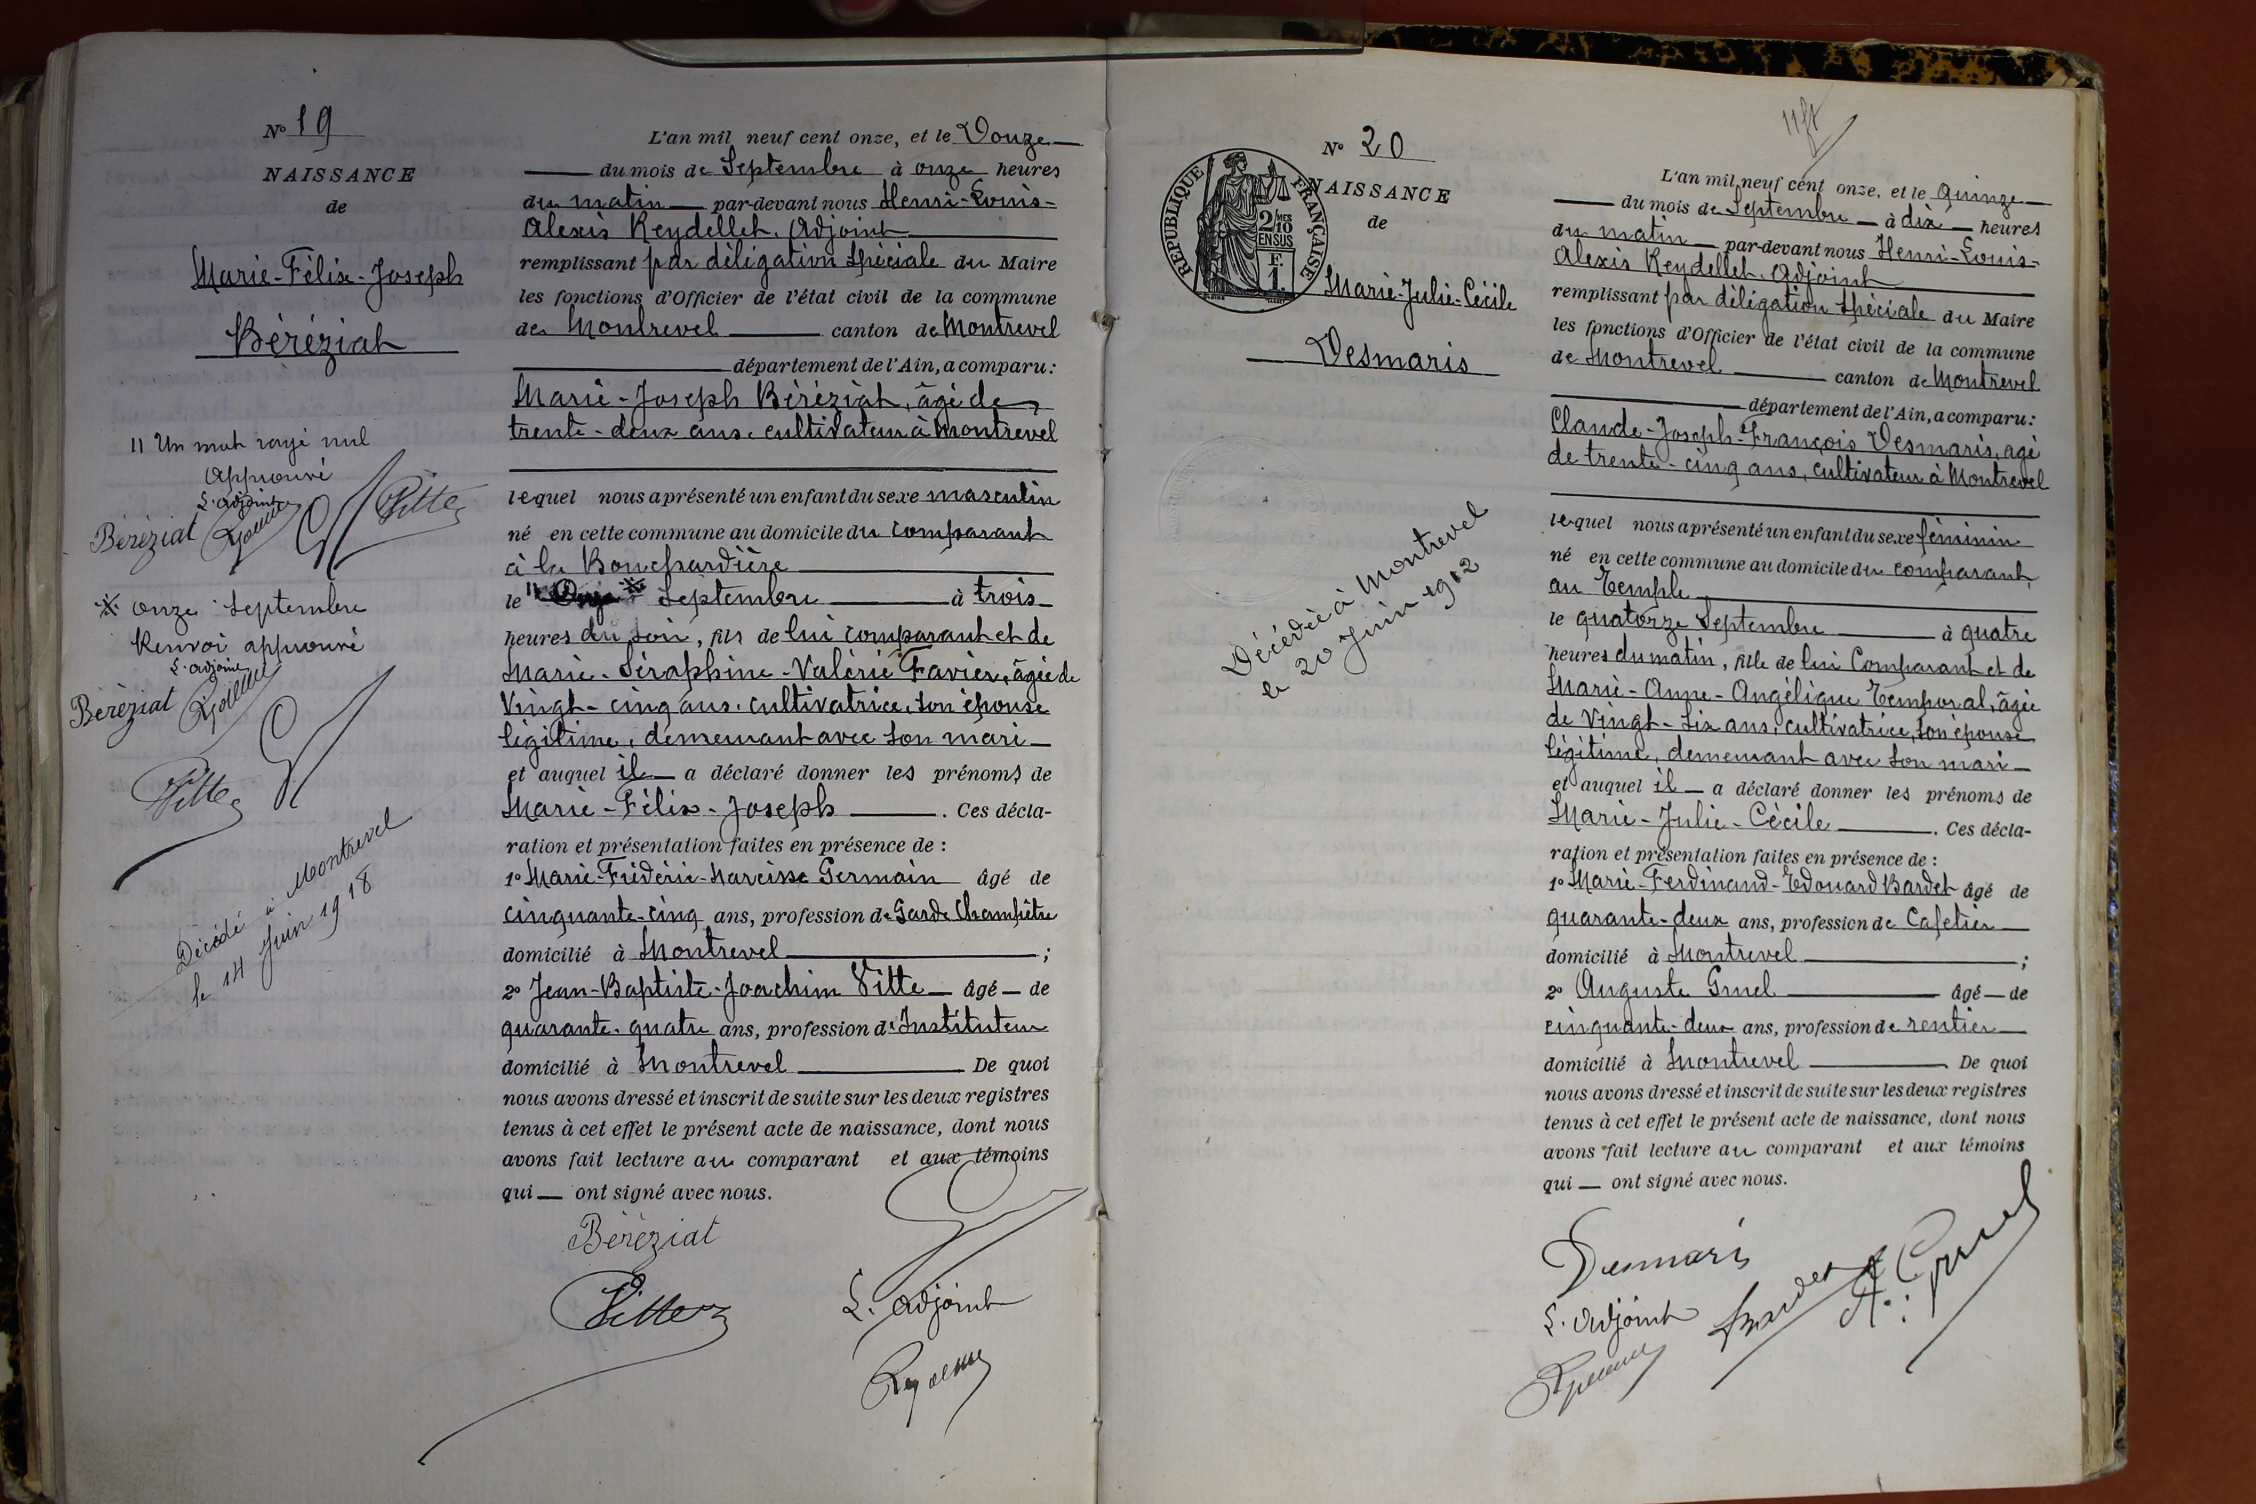 Nº 19
NAISSANCE
de
Marie-Félix-Joseph
Béréziat
11 Un mot rayé nul
Approuvé
L'adjoint
Béréziat
Vitte
※ onze Septembre
Renvoi approuvé
L'adjoint
Béréziat
Vitte
Décédé à Montrevel
le 14 Juin 1918
L'an mil neuf cent onze, et le Douze
du mois de Septembre à onze heures
du matin par-devant nous Henri-Louis-
Alexis Reydellet, Adjoint
remplissant par délégation spéciale du Maire
les fonctions d'Officier de l'état civil de la commune
de Montrevel canton de Montrevel
département de l'Ain, a comparu:
Marie-Joseph Béréziat, âgé de
trente-deux ans, cultivateur à Montrevel
lequel nous a présenté un enfant du sexe masculin
né en cette commune au domicile du comparant
à la Bonchardière
le 11 ※ Septembre à trois
heures du soir, fils de lui comparant et de
Marie-Séraphine-Valérie Favier, âgée de
Vingt-cinq ans, cultivatrice, son épouse
légitime, demeurant avec son mari
et auquel il a déclaré donner les prénoms de
Marie-Félix-Joseph. Ces décla-
ration et présentation faites en présence de :
1º Marie-Frédéric-Narcisse Germain âgé de
cinquante-cinq ans, profession de Garde Champêtre
domicilié à Montrevel ;
2º Jean-Baptiste-Joachim Vitte âgé de
quarante-quatre ans, profession d'Instituteur
domicilié à Montrevel De quoi
nous avons dressé et inscrit de suite sur les deux registres
tenus à cet effet le présent acte de naissance, dont nous
avons fait lecture au comparant et aux témoins
qui ont signé avec nous.
Béréziat
Vitte
L'adjoint
Nº 20
RÉPUBLIQUE FRANÇAISE
2/10 MES
EN SUS
F.
1.
NAISSANCE
de
Marie-Julie-Cécile
Desmaris
Décédée à Montrevel
le 20 Juin 1912
L'an mil neuf cent onze, et le quinze
du mois de Septembre à dix heures
du matin par-devant nous Henri-Louis-
Alexis Reydellet, Adjoint
remplissant par délégation spéciale du Maire
les fonctions d'Officier de l'état civil de la commune
de Montrevel canton de Montrevel
département de l'Ain, a comparu:
Claude-Joseph-François Desmaris, agé
de trente-cinq ans, cultivateur à Montrevel
lequel nous a présenté un enfant du sexe féminin
né en cette commune au domicile du comparant,
au Temple
le quatorze Septembre à quatre
heures du matin, fille de lui Comparant et de
Marie-Anne-Angélique Temporal, âgée
de Vingt-six ans, cultivatrice, son épouse
légitime, demeurant avec son mari
et auquel il a déclaré donner les prénoms de
Marie-Julie-Cécile. Ces décla-
ration et présentation faites en présence de :
1º Marie-Ferdinand-Edouard Bardet âgé de
quarante-deux ans, profession de Cafetier
domicilié à Montrevel ;
2º Auguste Gruel âgé de
cinquante-deux ans, profession de rentier
domicilié à Montrevel De quoi
nous avons dressé et inscrit de suite sur les deux registres
tenus à cet effet le présent acte de naissance, dont nous
avons fait lecture au comparant et aux témoins
qui ont signé avec nous.
Desmaris
Bardet
A. Gruel
L'adjoint